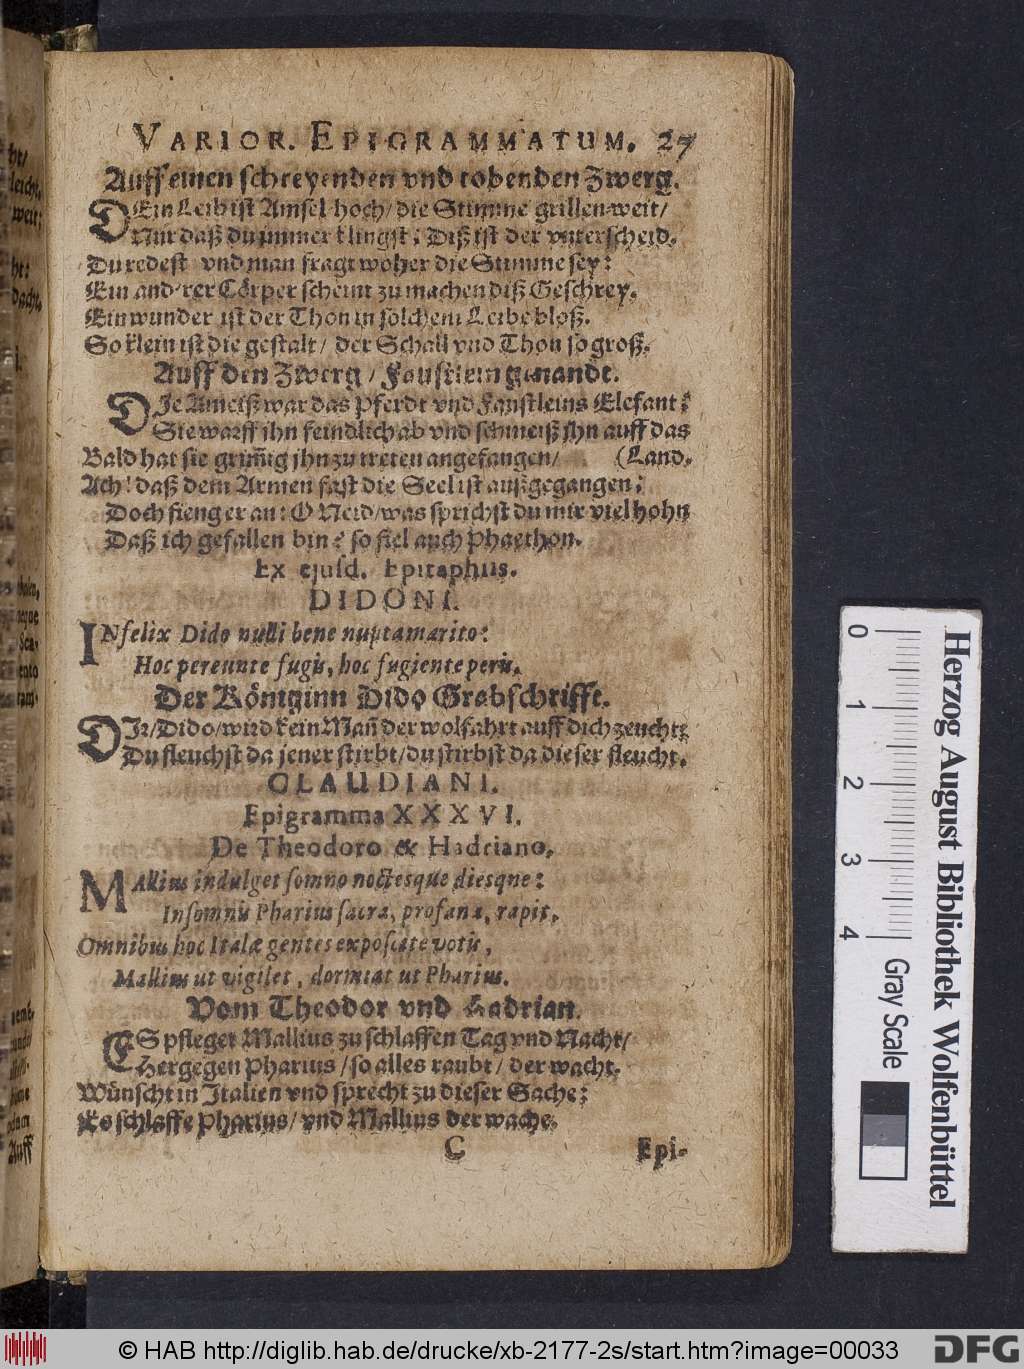 VARIOR. EPIGRAMMATUM. 27
Auff einen schreyenden vnd tobenden Zwerg.
DEin Leib ist Amsel-hoch/ die Stimme grillen-weit/
Nur daß du jmmer klingst; Diß ist der vnterscheid.
Du redest vnd man fragt woher die Stimme sey:
Ein and'rer Cörper scheint zu machen diß Geschrey.
Ein wunder ist der Thon in solchem Leibe bloß.
So klein ist die gestalt/ der Schall vnd Thon so groß.
Auff den Zwerg/ Faustlein genandt.
DJe Ameiß war das Pferdt vnd Faustleins Elefant;
Sie warff jhn feindlich ab vnd schmeiß jhn auff das
Bald hat sie grim̃ig jhn zu treten angefangen/ (Land.
Ach! daß dem Armen fast die Seel ist außgegangen;
Doch fieng er an: O Neid/ was sprichst du mir viel hohn
Daß ich gefallen bin? so fiel auch Phaethon.
Ex ejusd. Epitaphiis.
DIDONI.
INfelix Dido nulli bene nupta marito:
Hoc pereunte fugis, hoc fugiente peris.
Der Königinn Dido Grabschrifft.
DJr/ Dido/ wird kein Mañ der wolfahrt auff dich zeucht;
Du fleuchst da jener stirbt/ du stirbst da dieser fleucht.
CLAUDIANI.
Epigramma XXXVI.
De Theodoro & Hadriano.
MAllius indulget somno noctesque diesque:
Insomnis Pharius sacra, profana, rapit.
Omnibus hoc Italæ gentes exposcite votis,
Mallius ut vigilet, dormiat ut Pharius.
Vom Theodor vnd Hadrian.
ES pfleget Mallius zu schlaffen Tag vnd Nacht/
Hergegen Pharius/ so alles raubt/ der wacht.
Wünscht in Jtalien vnd sprecht zu dieser Sache;
Es schlaffe Pharius/ vnd Mallius der wache.
C Epi-
0 1 2 3 4
Gray Scale
Herzog August Bibliothek Wolfenbüttel
© HAB http://diglib.hab.de/drucke/xb-2177-2s/start.htm?image=00033
DFG